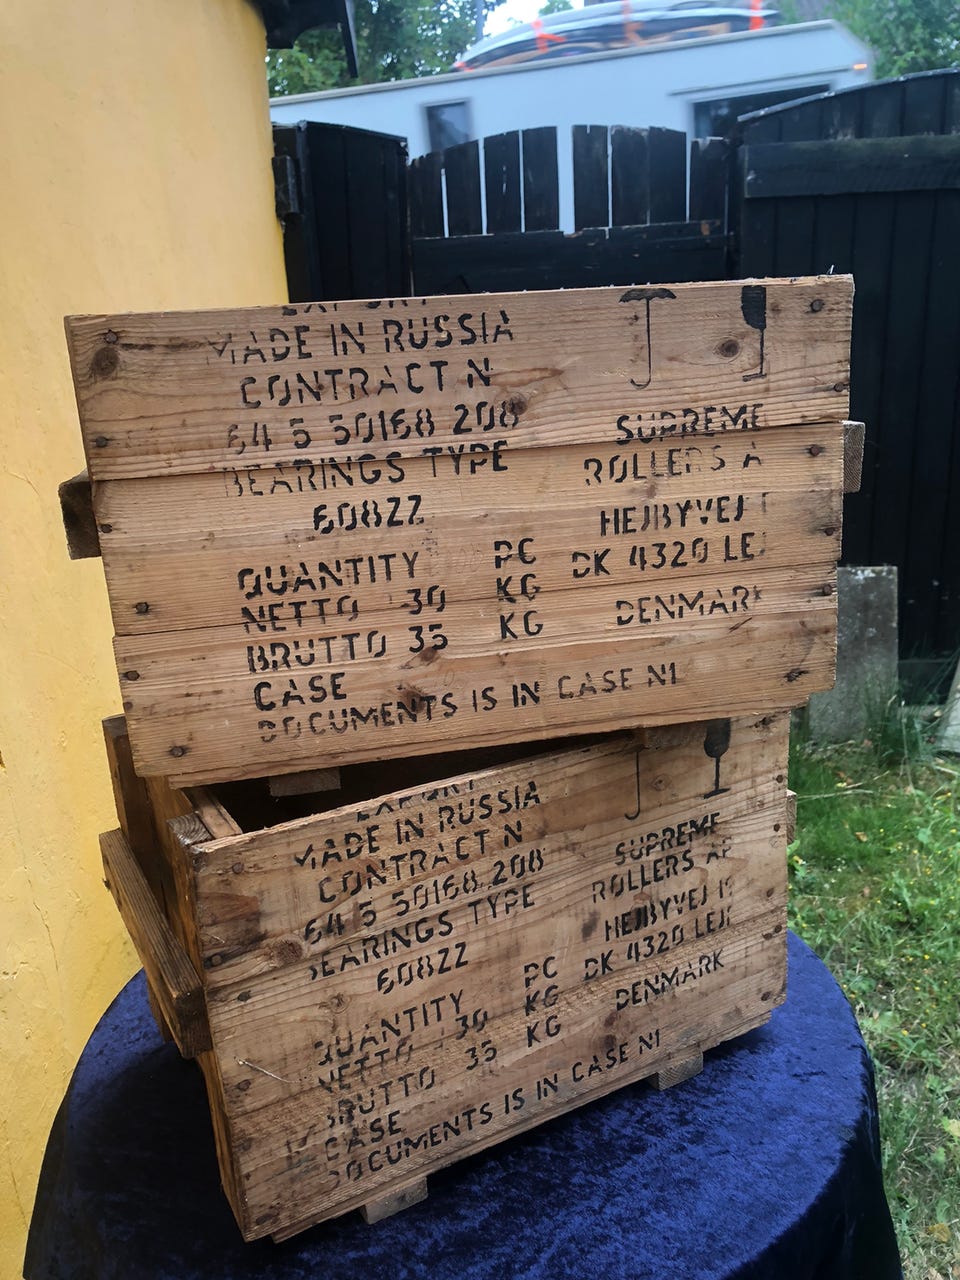 EXPORT
MADE IN RUSSIA
CONTRACT N
64 5 50168 208
BEARINGS TYPE
608ZZ
QUANTITY PC
NETTO 30 KG
BRUTTO 35 KG
CASE
DOCUMENTS IS IN CASE N1
SUPREME
ROLLERS A
HEJBYVEJ
DK 4320 LEJ
DENMARK
EXPORT
MADE IN RUSSIA
CONTRACT N
64 5 50168 208
BEARINGS TYPE
608ZZ
QUANTITY PC
NETTO 30 KG
BRUTTO 35 KG
CASE
DOCUMENTS IS IN CASE N1
SUPREME
ROLLERS AP
HEJBYVEJ
DK 4320 LEJ
DENMARK